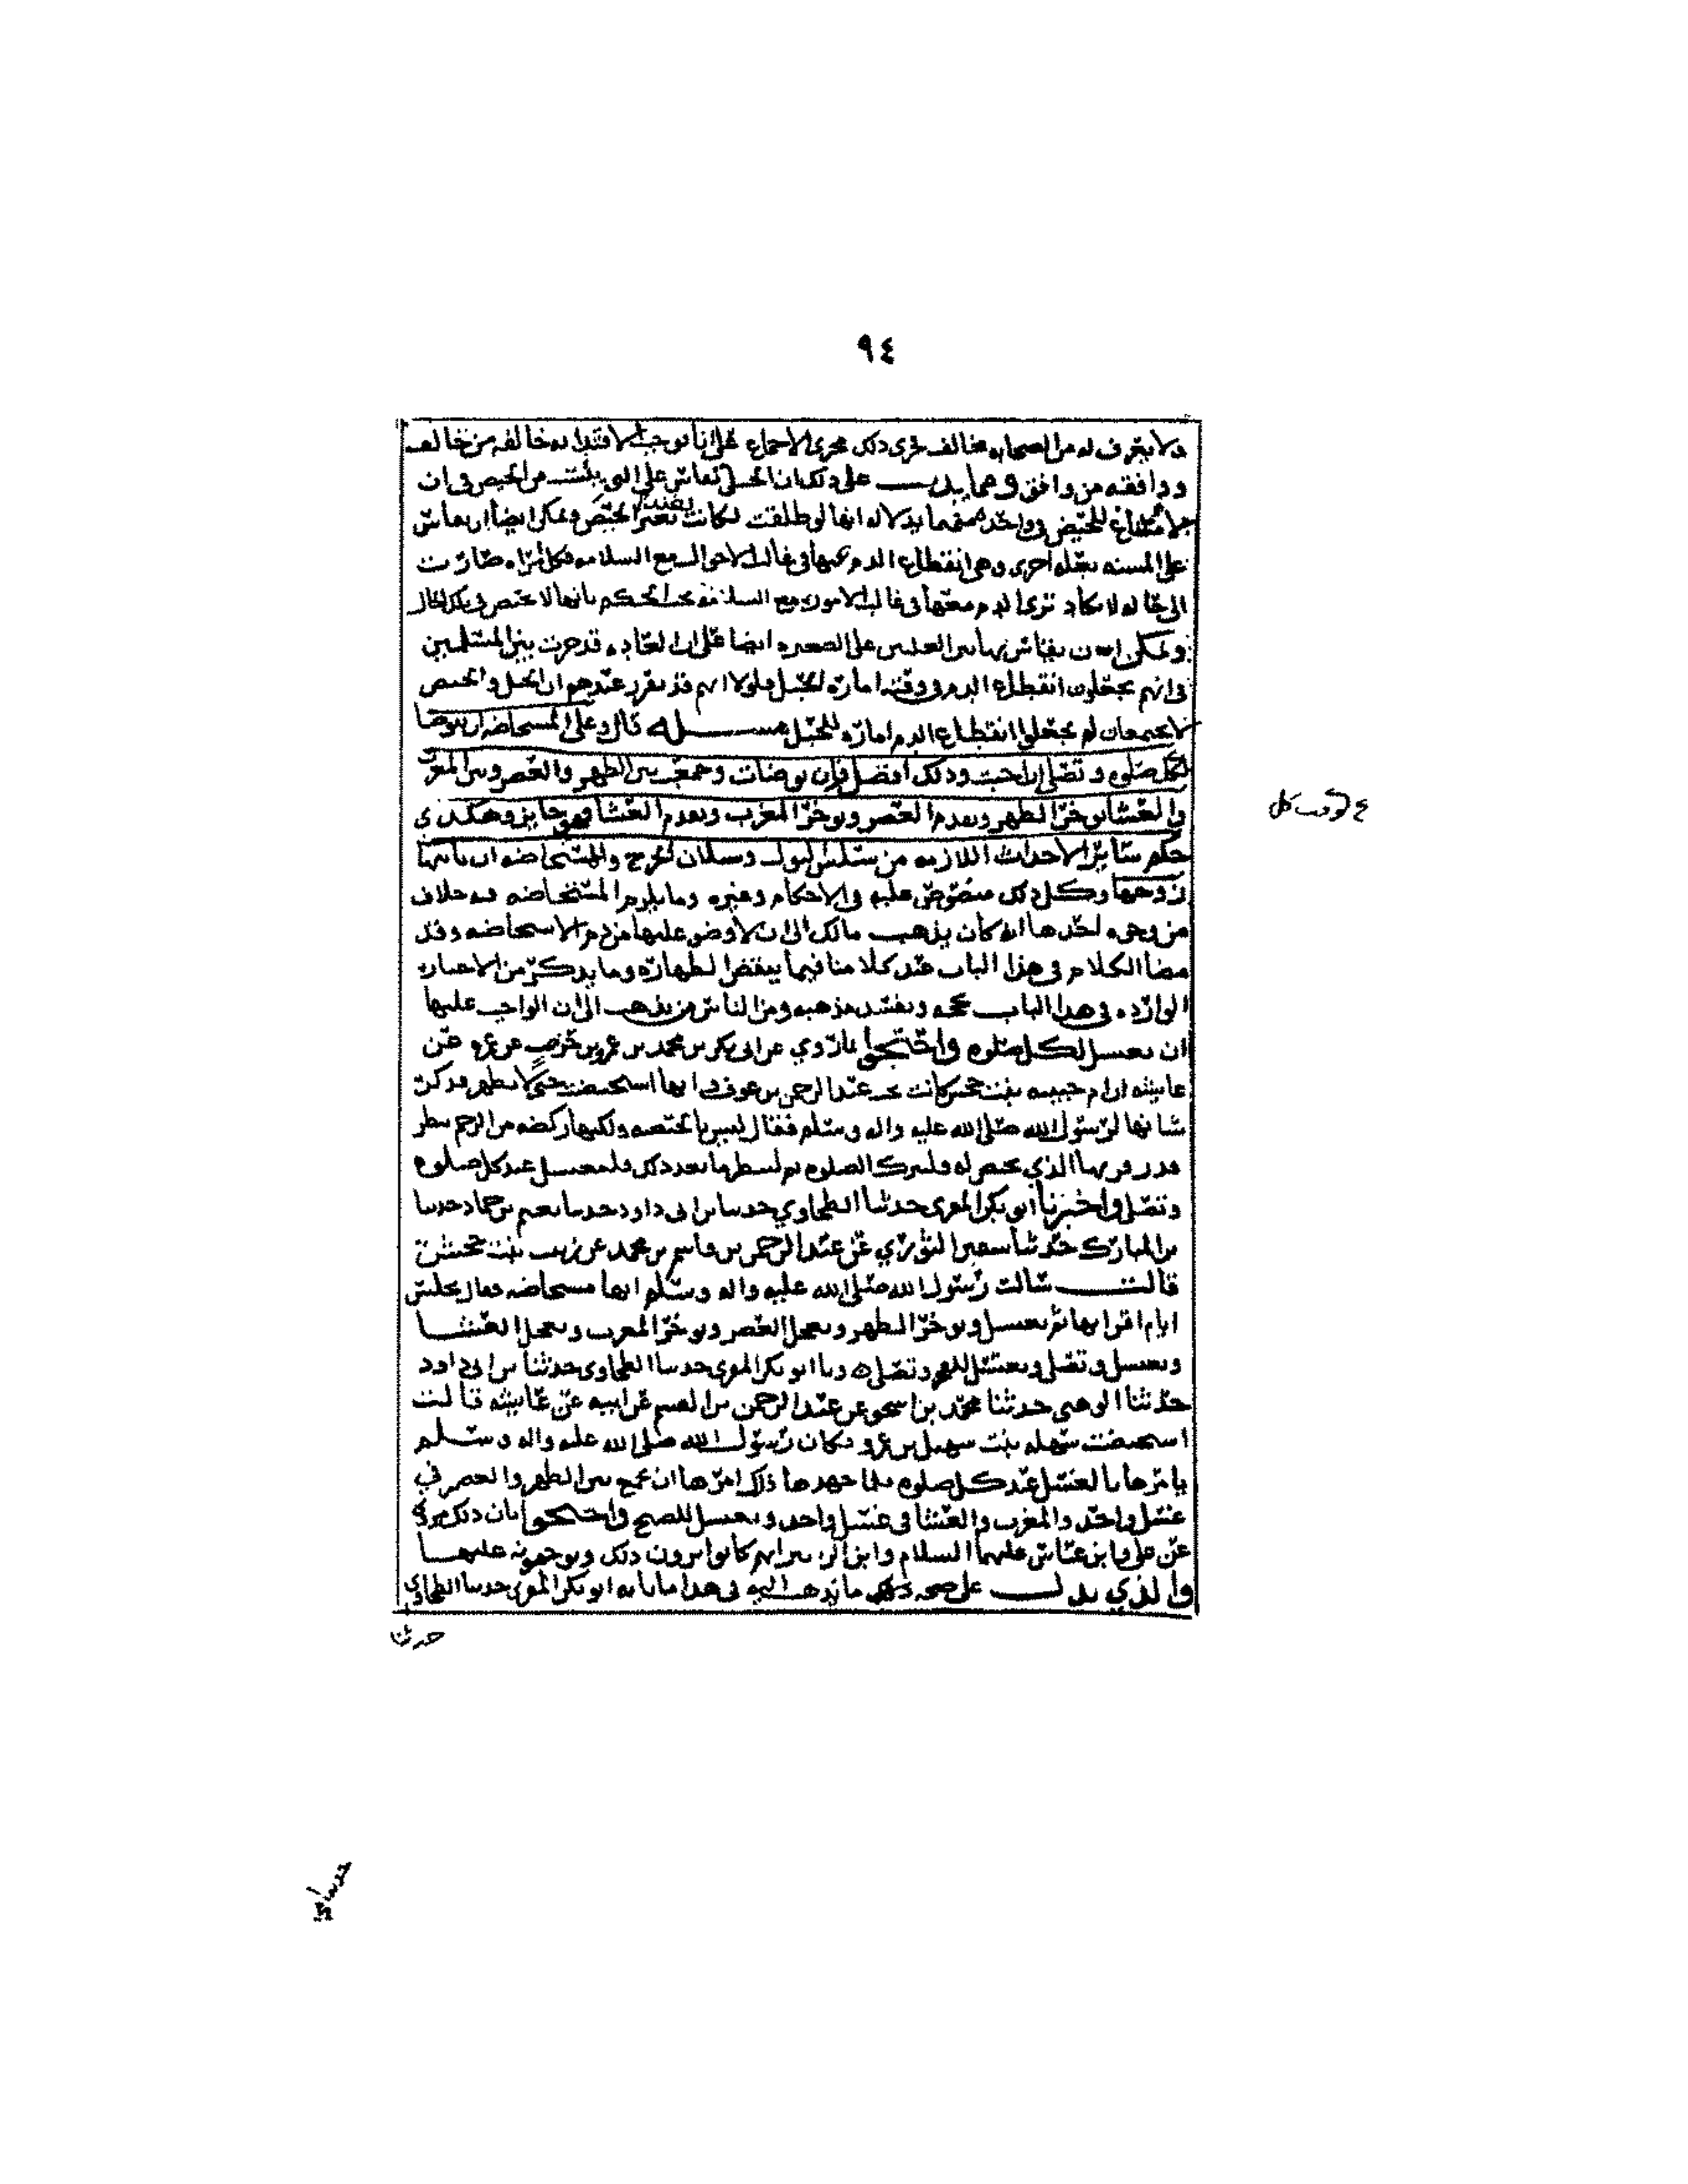 ٩٤
ولا يعرف له من الصحابه مخالف فجرى ذلك مجرى الاجماع على انا نوجب الاقتدا به خالفه من خالف
ووافقه من وافق ومما يدل على ذلك ان الحبلى تقاس على التي يئست من الحيض في ان
لو طلقت لكانت الحيض ويمكن ايضا ان تقاس
على المسنه بعله اخرى وهي انقطاع الدم عنها في غالب الاحوال مع السلامه فكل امراه صارت
الى حاله لا تكاد ترى الدم معها في غالب الامور مع السلامه يجب الحكم بانها لا تحيض في تلك الحال
ويمكن ان تقاس بهاتين العلتين على الصغيره ايضا على ان العاده قد جرت بين المسلمين
في انهم يجعلون انقطاع الدم ووقته اماره للحبل فلولا انهم قد تقرر عندهم ان الحبل والحيض
لا يجتمعان لم يجعلوا انقطاع الدم اماره للحبل مسله قال وعلى المستحاضه ان توضا
لكل صلوه وتصلي ان احبت وذلك افضل فان توضات وجمعت بين الظهر والعصر وبين المغرب
والعشا توخر الظهر وتقدم العصر وتوخر المغرب وتقدم العشا فهو جايز وهكذى
حكم سائر الاحداث اللازمه من سلس البول وسيلان الجرح والمستحاضه ان ياتيها
زوجها وكل ذلك منصوص عليه في الاحكام وغيره وما يلزم المستحاضه فيه خلاف
من وجوه احدها انه كان يذهب مالك الى ان لا وضو عليها من دم الاستحاضه وقد
مضا الكلام في هذا الباب عند كلامنا فيما ينقض الطهاره وما يذكر من الاخبار
الوارده في هذا الباب يحجه ويفسد مذهبه ومن الناس من يذهب الى ان الواجب عليها
ان تغتسل لكل صلوه واحتجوا بما روي عن ابي بكر بن محمد بن عمرو بن حزم عن عمره عن
عايشه ان ام حبيبه بنت جحش كانت تحت عبد الرحمن بن عوف وانها استحيضت حتى لا تطهر فذكرت
شانها لرسول الله صلى الله عليه واله وسلم فقال ليس بالحيضه ولكنها ركضه من الرحم لتنظر
قدر قروها الذي تحيض له فلتترك الصلوه ثم لتنظر ما بعد ذلك فلتغتسل عند كل صلوه
وتصلي واخبرنا ابو بكر المقري حدثنا الطحاوي حدثنا بن ابي داود حدثنا نعيم بن حماد حدثنا
بن المبارك حدثنا سفين الثوري عن عبد الرحمن بن قاسم بن محمد عن زينب بنت جحش
قالت سالت رسول الله صلى الله عليه واله وسلم انها مستحاضه فقال تجلس
ايام اقرايها ثم تغتسل وتوخر الظهر وتعجل العصر وتوخر المغرب وتعجل العشا
وتغتسل وتصلي وتغتسل للفجر وتصلي ونا ابو بكر المقري حدثنا الطحاوي حدثنا بن ابي داود
حدثنا الوهبي حدثنا محمد بن اسحق عن عبد الرحمن بن القسم عن ابيه عن عايشه قالت
استحيضت سهله بنت سهيل بن عمرو فكان رسول الله صلى الله عليه واله وسلم
يامرها بالغسل عند كل صلوه فلما جهدها ذلك امرها ان تجمع بين الظهر والعصر في
غسل واحد والمغرب والعشا في غسل واحد وتغتسل للصبح واحتجوا بان ذلك مروي
عن علي وابن عباس عليهما السلام وابن الزبير انهم كانوا يرون ذلك ويوجبونه عليها
والذي يدل على صحه ما نذهب اليه في هذا ما نا به ابو بكر المقري حدثنا الطحاوي
حدثنا